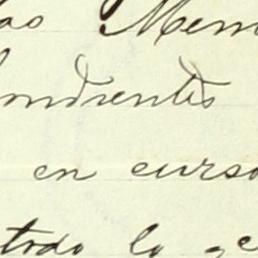 las Mem
ondientes
en curso
todo lo ge